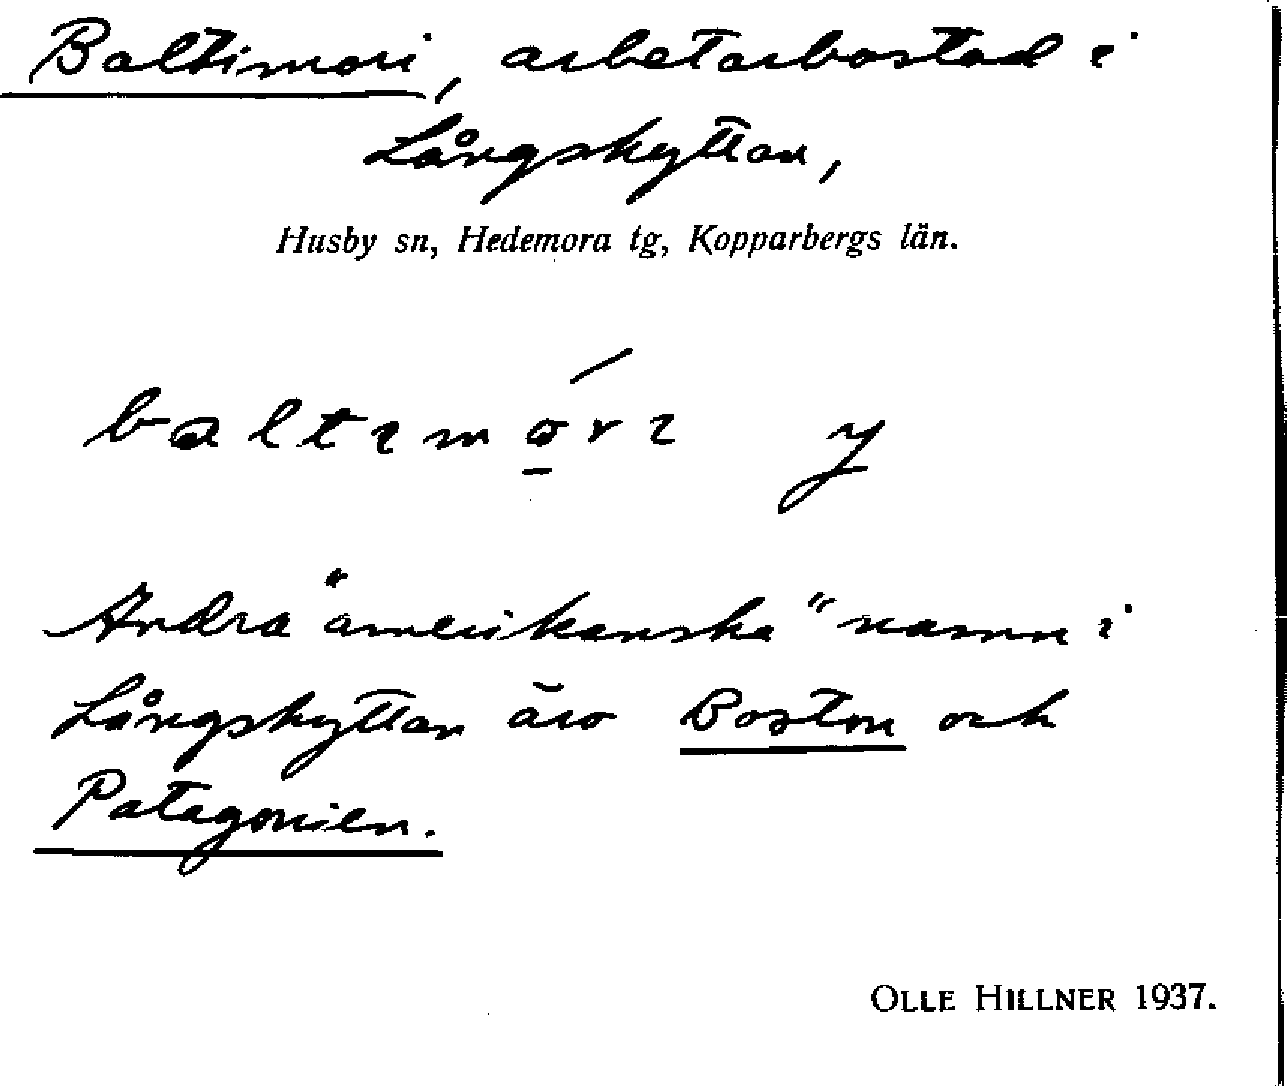 Baltimori, arbetarbostad i
Långshyttan,
Husby sn, Hedemora tg, Kopparbergs län.
baltimóri y
Andra "amerikanska" namn i
Långshyttan äro Boston och
Patagonien.
OLLE HILLNER 1937.